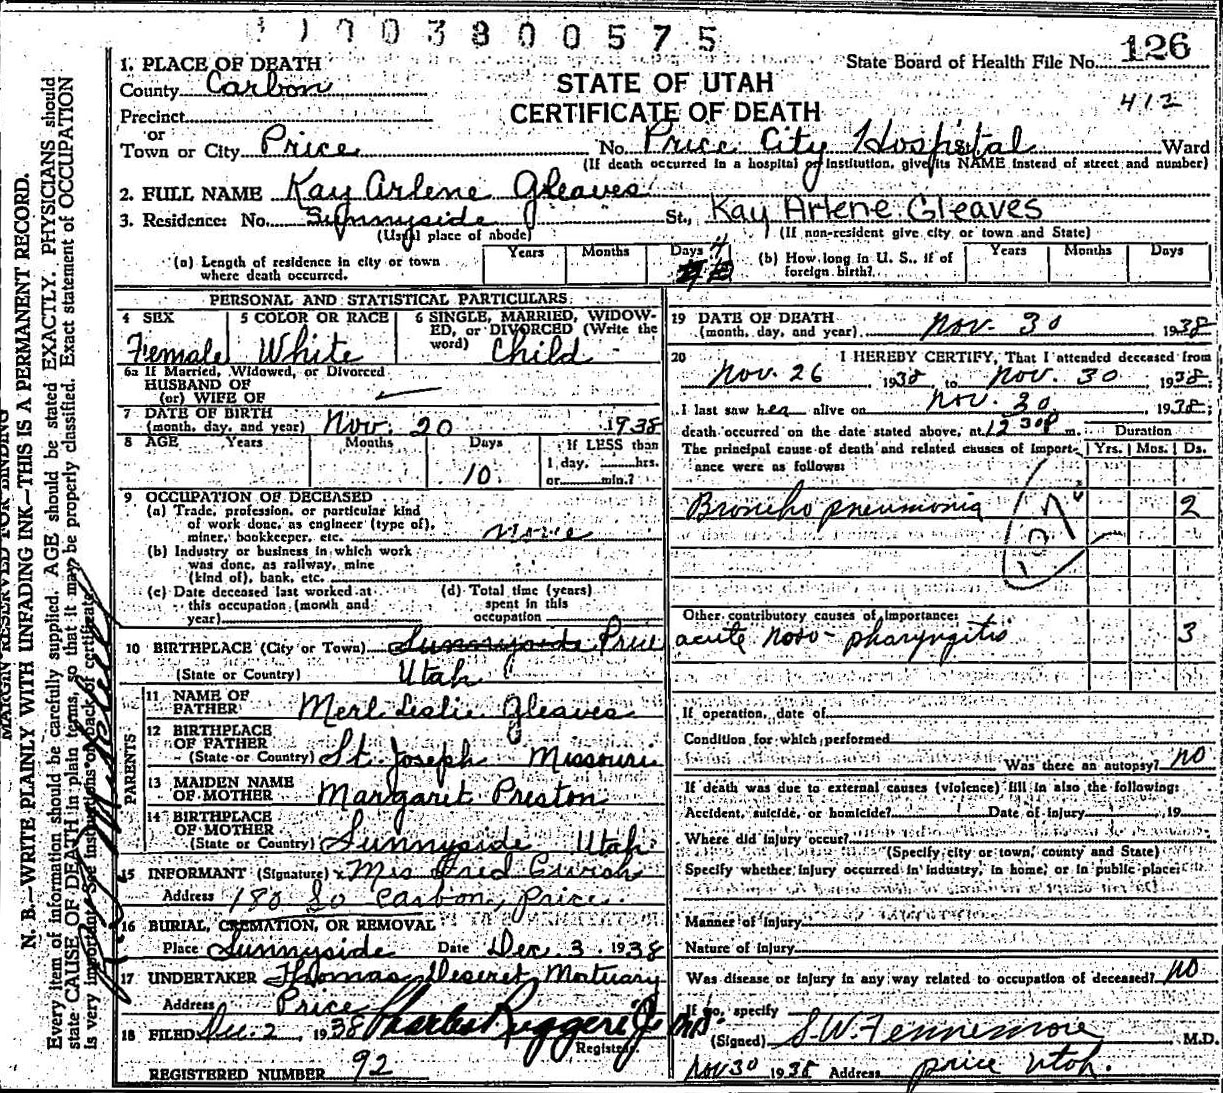 003800575
126
State Board of Health File No.
412
1. PLACE OF DEATH
County Carbon
STATE OF UTAH
CERTIFICATE OF DEATH
Precinct
or
Town or City Price No. Price City Hospital Ward
(If death occurred in a hospital or institution, give its NAME instead of street and number)
2. FULL NAME Kay Arlene Gleaves
3. Residence: No. Sunnyside St., Kay Arlene Gleaves
(Usual place of abode) (If non-resident give city or town and State)
(a) Length of residence in city or town where death occurred. Years Months Days 4
(b) How long in U. S., if of foreign birth? Years Months Days
PERSONAL AND STATISTICAL PARTICULARS
4 SEX Female
5 COLOR OR RACE White
6 SINGLE, MARRIED, WIDOWED, or DIVORCED (Write the word) Child
6a If Married, Widowed, or Divorced
HUSBAND OF
(or) WIFE OF
7 DATE OF BIRTH
(month, day, and year) Nov. 20 1938
8 AGE Years Months Days If LESS than
10 1 day, hrs.
or min.?
9 OCCUPATION OF DECEASED
(a) Trade, profession, or particular kind
of work done, as engineer (type of),
miner, bookkeeper, etc. none
(b) Industry or business in which work
was done, as railway, mine
(kind of), bank, etc.
(c) Date deceased last worked at
this occupation (month and
year)
(d) Total time (years)
spent in this
occupation
10 BIRTHPLACE (City or Town) Sunnyside Price
(State or Country) Utah
PARENTS
11 NAME OF
FATHER Merl Leslie Gleaves
12 BIRTHPLACE
OF FATHER
(State or Country) St. Joseph Missouri
13 MAIDEN NAME
OF MOTHER Margaret Preston
14 BIRTHPLACE
OF MOTHER
(State or Country) Sunnyside Utah
15 INFORMANT (Signature) x Mrs Fred
Address 180 So Carbon, Price.
16 BURIAL, CREMATION, OR REMOVAL
Place Sunnyside Date Dec. 3. 1938
17 UNDERTAKER Thomas Deseret Mortuary
Address Price
18 FILED Dec. 2, 1938 Charles Ruggeri Jr MD.
Registrar
REGISTERED NUMBER 92
19 DATE OF DEATH
(month, day, and year) Nov. 30 1938
20 I HEREBY CERTIFY, That I attended deceased from
Nov. 26, 1938, to Nov. 30, 1938;
I last saw her alive on Nov. 30 1938;
death occurred on the date stated above, at 12 30 P m. Duration
The principal cause of death and related causes of importance were as follows: Yrs. Mos. Ds.
Broncho pneumonia 2
107
Other contributory causes of importance:
acute naso-pharyngitis 3
If operation, date of
Condition for which performed
Was there an autopsy? no
If death was due to external causes (violence) fill in also the following:
Accident, suicide, or homicide? Date of injury 19
Where did injury occur?
(Specify city or town, county and State)
Specify whether injury occurred in industry, in home, or in public place:
Manner of Injury
Nature of Injury
Was disease or injury in any way related to occupation of deceased? no
If so, specify
(Signed) S.W. Fennemore M.D.
Nov 30 1938 Address Price Utah.
MARGIN RESERVED FOR BINDING
N. B.—WRITE PLAINLY WITH UNFADING INK—THIS IS A PERMANENT RECORD.
Every item of information should be carefully supplied. AGE should be stated EXACTLY. PHYSICIANS should
state CAUSE OF DEATH in plain terms, so that it may be properly classified. Exact statement of OCCUPATION
is very important. See instructions on back of certificate.